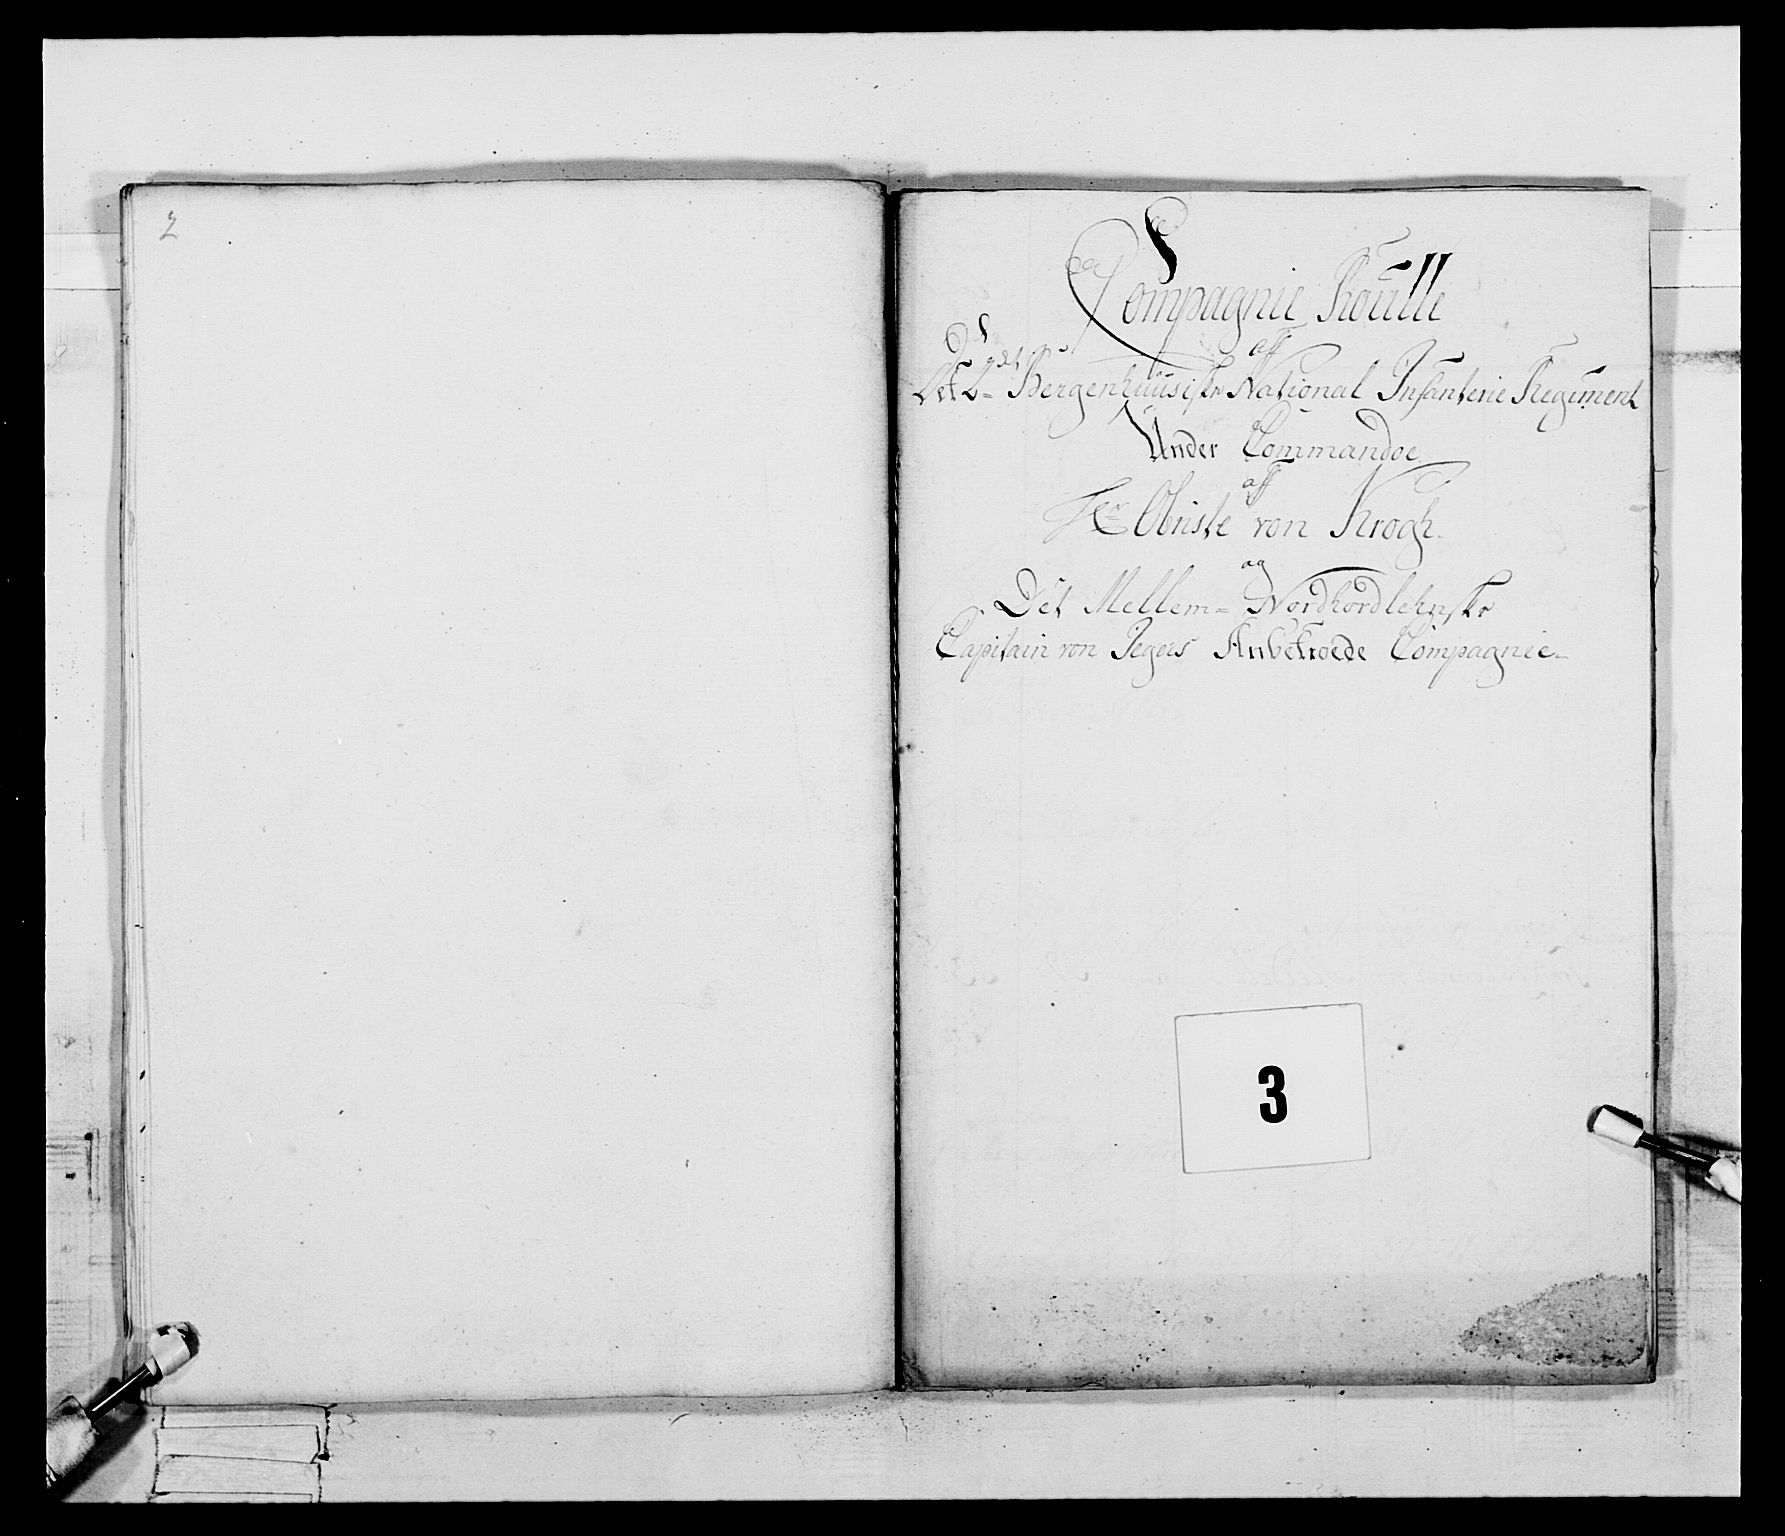 2
Compagnie Roulle
aff
Det 2det Bergenhuusiske National Infanterie Regiment
Under Commandoe
aff
Hr Obriste von Krogh
og
Det Mellem- Nordhordlehnske
Capitain von Jegers Anbetroede Compagnie
3